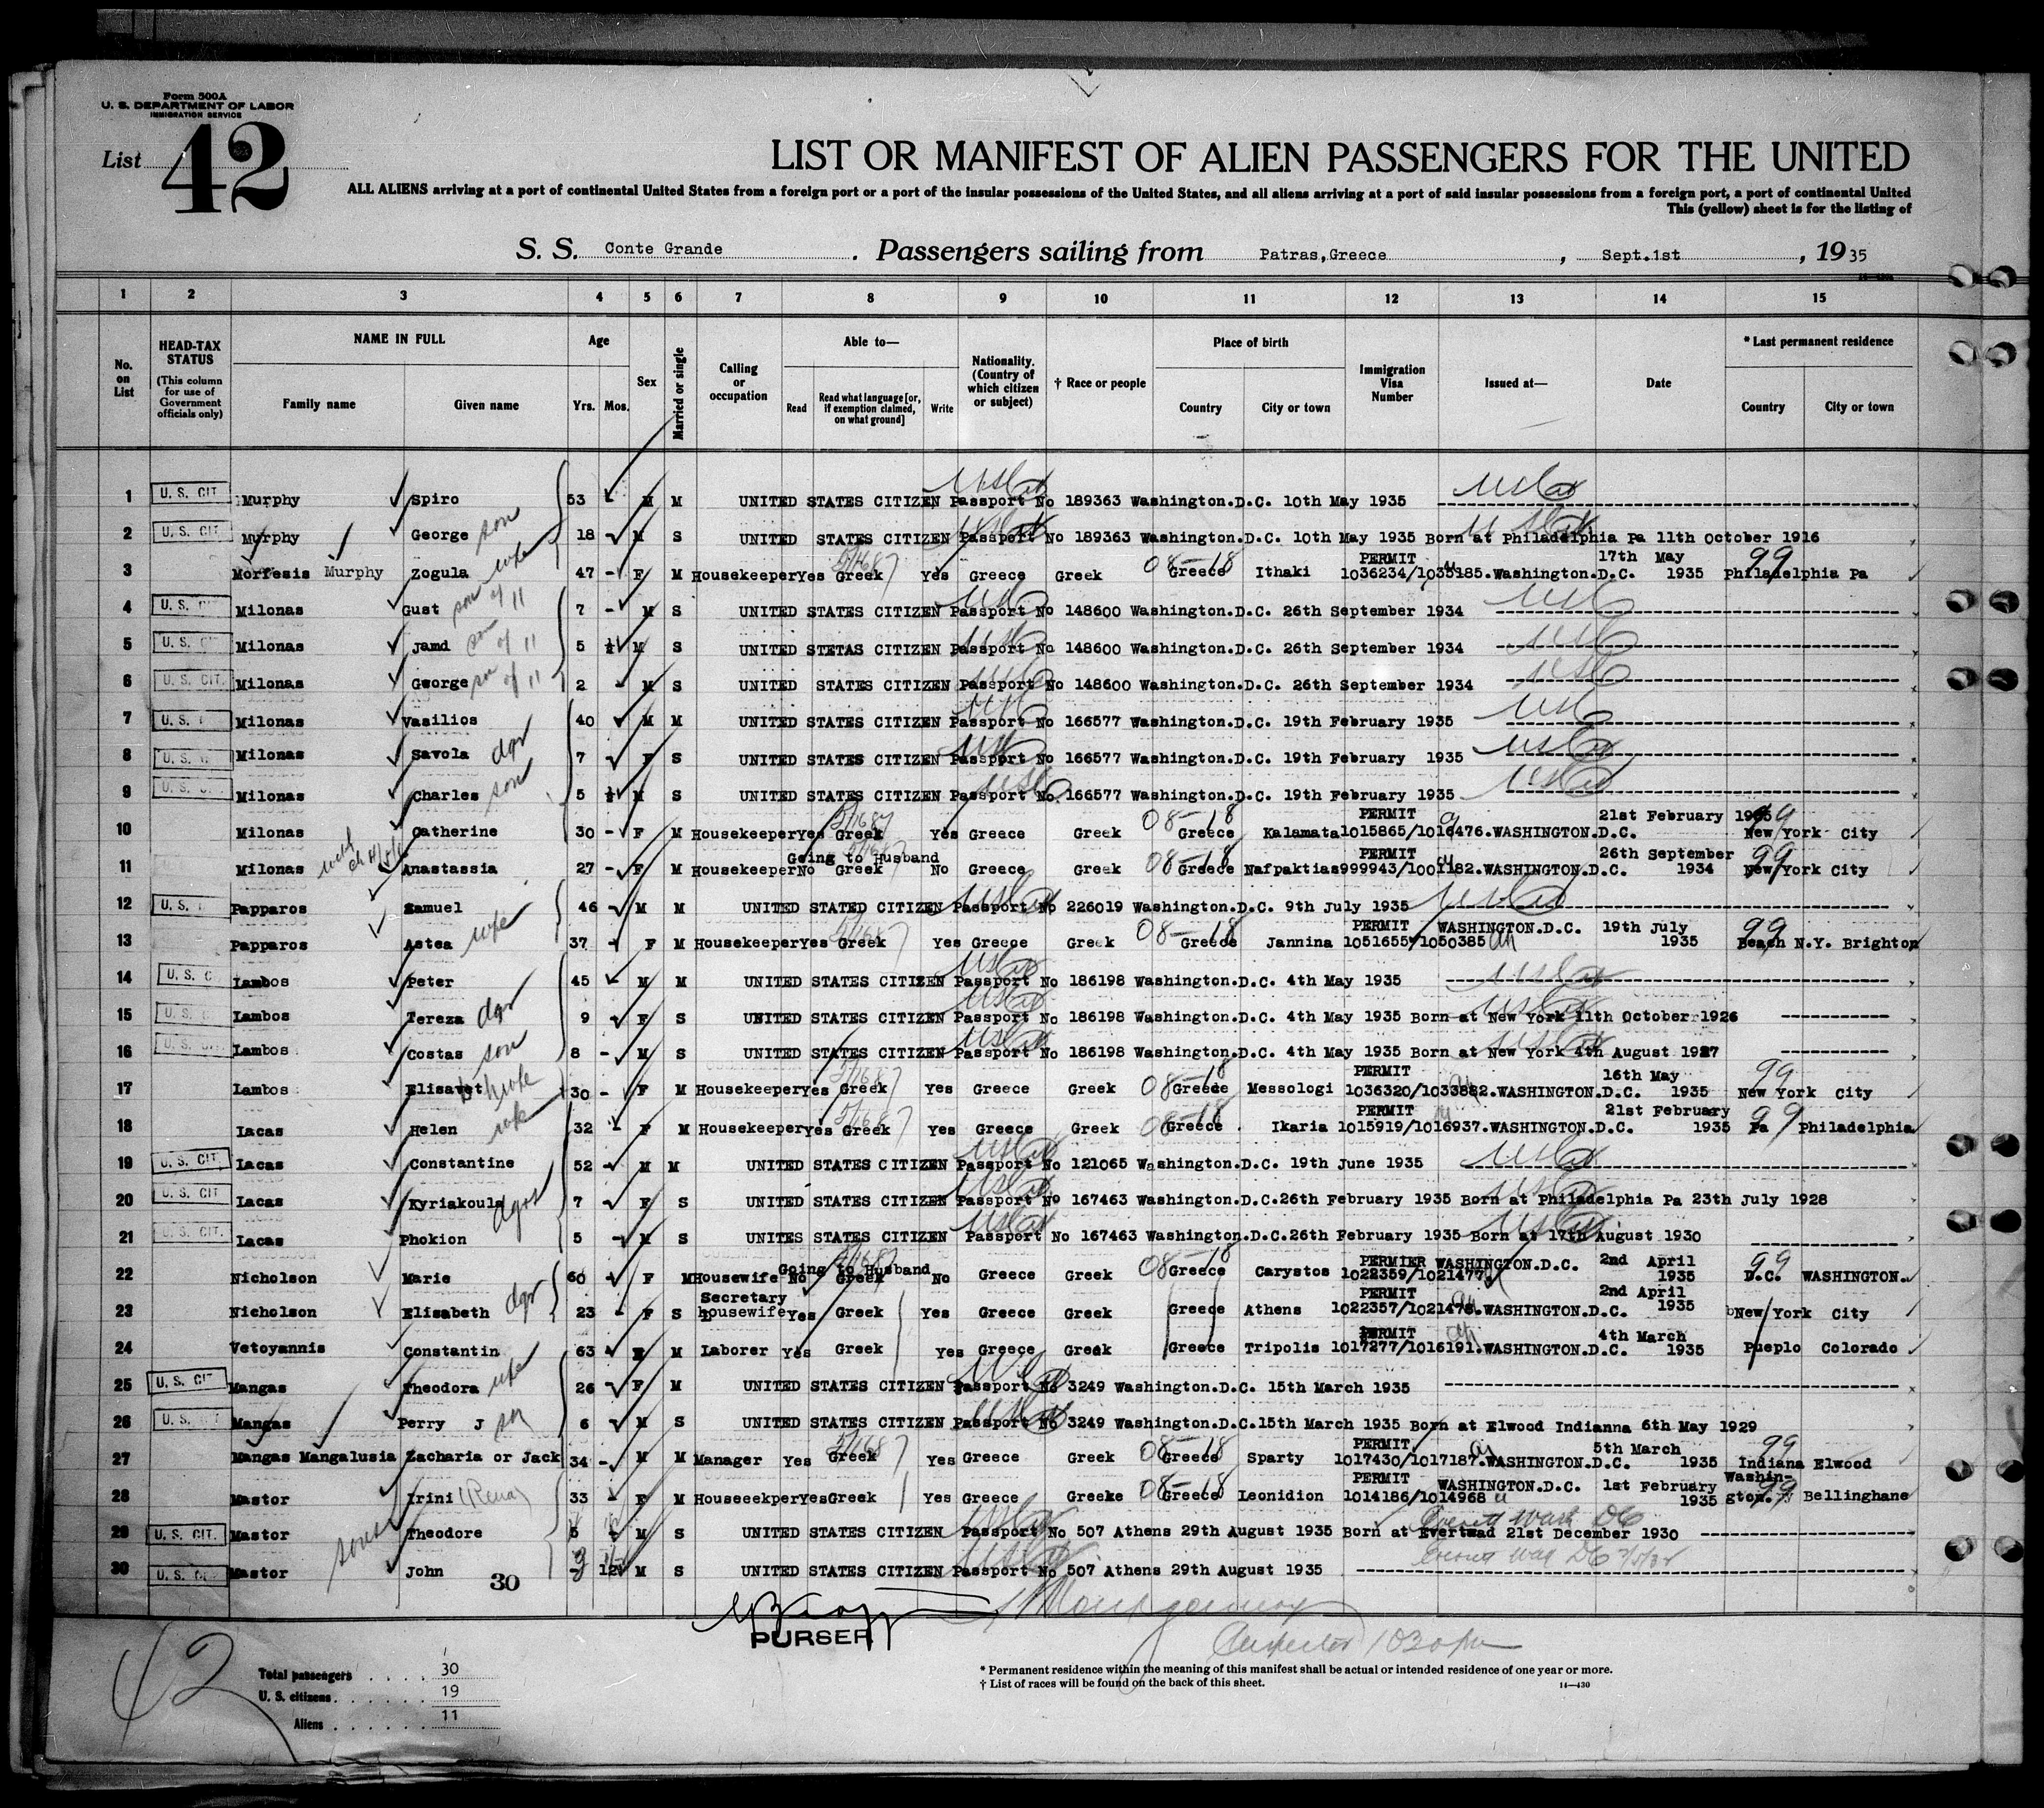 Form 500A
U. S. DEPARTMENT OF LABOR
IMMIGRATION SERVICE
List 42
LIST OR MANIFEST OF ALIEN PASSENGERS FOR THE UNITED
ALL ALIENS arriving at a port of continental United States from a foreign port or a port of the insular possessions of the United States, and all aliens arriving at a port of said insular possessions from a foreign port, a port of continental United
This (yellow) sheet is for the listing of
S. S. Conte Grande. Passengers sailing from Patras,Greece, Sept.1st, 1935
1 2 3 4 5 6 7 8 9 10 11 12 13 14 15
No. on List
HEAD-TAX STATUS (This column for use of Government officials only)
NAME IN FULL Family name Given name
Age Yrs. Mos.
Sex
Married or single
Calling or occupation
Able to— Read Read what language [or, if exemption claimed, on what ground] Write
Nationality. (Country of which citizen or subject)
† Race or people
Place of birth Country City or town
Immigration Visa Number
Issued at—
Date
* Last permanent residence Country City or town
1 U. S. CIT. Murphy Spiro 53 M M UNITED STATES CITIZEN Passport No 189363 Washington.D.C. 10th May 1935
2 U. S. CIT. Murphy George son 18 M S UNITED STATES CITIZEN Passport No 189363 Washington.D.C. 10th May 1935 Born at Philadelphia Pa 11th October 1916
3 Morfesis Murphy Zogula wife 47 - F M Housekeeper Yes Greek Yes Greece Greek 08-18 Greece Ithaki PERMIT 1036234/1035185.Washington.D.C. 17th May 1935 99 Philadelphia Pa
4 U. S. Milonas Gust son of 11 7 - M S UNITED STATES CITIZEN Passport No 148600 Washington.D.C. 26th September 1934
5 U. S. Milonas Jamd son of 11 5 M S UNITED STETAS CITIZEN Passport No 148600 Washington.D.C. 26th September 1934
6 U. S. CIT. Milonas Gworge son of 11 2 - M S UNITED STATES CITIZEN Passport No 148600 Washington.D.C. 26th September 1934
7 U. S. Milonas Vasilios 40 M M UNITED STATES CITIZEN Passport No 166577 Washington.D.C. 19th February 1935
8 U. S. Milonas Savola dgr 7 F S UNITED STATES CITIZEN Passport No 166577 Washington.D.C. 19th February 1935
9 U. S. Milonas Charles son 5 M S UNITED STATES CITIZEN Passport No.166577 Washington.D.C. 19th February 1935
10 Milonas Catherine 30 - F M Housekeeper Yes Greek Yes Greece Greek 08-18 Greece Kalamata PERMIT 1015865/1016476.WASHINGTON.D.C. 21st February 1935 99 New York City
11 Milonas Anastassia 27 - F M Housekeeper No Going to Husband Greek No Greece Greek 08-18 Greece Nafpaktias PERMIT 999943/1001182.WASHINGTON.D.C. 26th September 1934 99 New York City
12 U. S. Papparos Samuel 46 M M UNITED STATED CITIZEN Passport No 226019 Washington.D.C. 9th July 1935
13 Papparos Astea wife 37 F M Housekeeper Yes Greek Yes Greece Greek 08-18 Greece Jannina PERMIT 1051655/1050385 WASHINGTON.D.C. 19th July 1935 99 Beach N.Y. Brighton
14 U. S. C Lambos Peter 45 M M UNITED STATES CITIZEN Passport No 186198 Washington.D.C. 4th May 1935
15 U. S. Lambos Tereza dgr 9 F S UNITED STATES CITIZEN Passport No 186198 Washington.D.C. 4th May 1935 Born at New York 11th October 1926
16 U. S. Lambos Costas son 8 - M S UNITED STATES CITIZEN Passport No 186198 Washington.D.C. 4th May 1935 Born at New York 4th August 1927
17 Lambos Elisavet wife 30 - F M Housekeeper Yes Greek Yes Greece Greek 08-18 Greece Messologi PERMIT 1036320/1033882.WASHINGTON.D.C. 16th May 1935 99 New York City
18 Lacas Helen wife 32 - F M Housekeeper Yes Greek Yes Greece Greek 08-18 Greece Ikaria PERMIT 1015919/1016937.WASHINGTON.D.C. 21st February 1935 99 Pa Philadelphia
19 U. S. CIT. Lacas Constantine 52 M M UNITED STATES CITIZEN Passport No 121065 Washington.D.C. 19th June 1935
20 U. S. CIT Lacas Kyriakoula 7 F S UNITED STATES CITIZEN Passport No 167463 Washington.D.C.26th February 1935 Born at Philadelphia Pa 23th July 1928
21 U. S. CIT. Lacas Phokion 5 M S UNITES STATES CITIZEN Passport No 167463 Washington.D.C.26th February 1935 Born at 17th August 1930
22 Nicholson Marie 60 F M Housewife No Going to Husband Greek No Greece Greek 08-18 Greece Carystos PERMIER 1022359/1021477 WASHINGTON.D.C. 2nd April 1935 99 D.C. WASHINGTON.
23 Nicholson Elisabeth dgr 23 - F S Secretary housewife Yes Greek Yes Greece Greek Greece Athens 1022357/1021478.WASHINGTON.D.C. 2nd April 1935 New York City
24 Vetoyannis Constantin 63 M Laborer Yes Greek Yes Greece Greek Greece Tripolis PERMIT 1017277/1016191.WASHINGTON.D.C. 4th March 1935 Pueplo Colorado
25 U. S. CIT Mangas Theodora wife 26 F M UNITED STATES CITIZEN Passport No 3249 Washington.D.C. 15th March 1935
26 U. S. Mangas Perry J son 6 M S UNITED STATES CITIZEN Passport No 3249 Washington.D.C.15th March 1935 Born at Elwood Indianna 6th May 1929
27 Mangas Mangalusia Zacharia or Jack 34 - M M Manager Yes Greek Yes Greece Greek 08-18 Greece Sparty PERMIT 1017430/1017187.WASHINGTON.D.C. 5th March 1935 99 Indiana Elwood
28 Mastor Irini (Rena) 33 - F M Houseeekper Yes Greek Yes Greece Greeke 08-18 Greece Leonidion PERMIT 1014186/1014968 WASHINGTON.D.C. 1st February 1935 99 Washin-gton. Bellinghane
29 U. S. CIT. Mastor Theodore 5 M S UNITED STATES CITIZEN Passport No 507 Athens 29th August 1935 Born at Evertwad 21st December 1930
30 U. S. Mastor John 12 M S UNITED STATES CITIZEN Passport No 507 Athens 29th August 1935
30
PURSER
Montgomery
Inspector 1030 pm
42
Total passengers 30
U. S. citizens 19
Aliens 11
* Permanent residence within the meaning of this manifest shall be actual or intended residence of one year or more.
† List of races will be found on the back of this sheet.
14—430